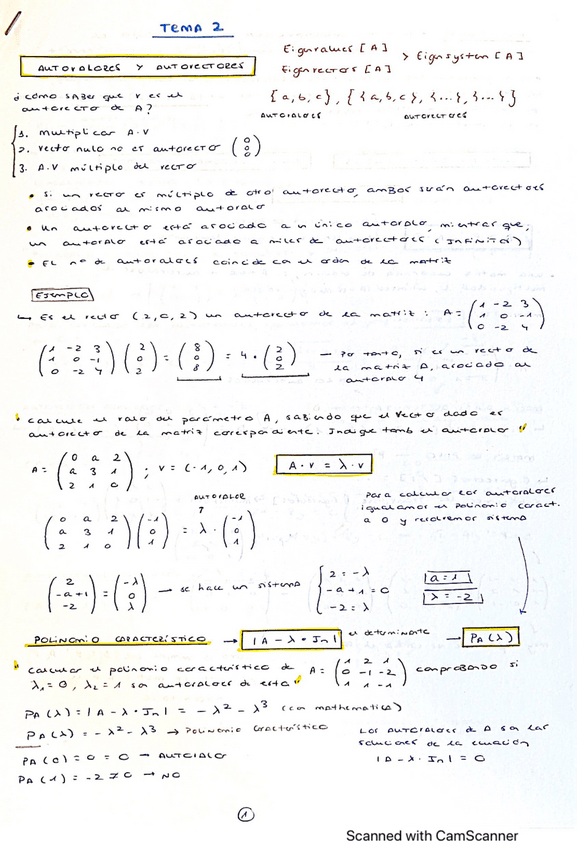 TEMA 2
AUTOVALORES Y AUTOVECTORES
Eigenvalues [A]
Eigenvectors [A]
> Eigensystem [A]
{a,b,c}, {{a,b,c}, {...}, {...}}
AUTOVALORES AUTOVECTORES
¿cómo saber que v es el
autovector de A?
1. multiplicar A·V
2. vector nulo no es autovector (0 0 0)
3. A·V múltiplo del vector
• Si un vector es múltiplo de otro autovector, ambos serán autovectores
asociados al mismo autovalor
• Un autovector está asociado a un único autovalor, mientras que,
un autovalor está asociado a miles de autovectores (INFINITOS)
• EL nº de autovalores coincide con el orden de la matriz
EJEMPLO
↳ Es el vector (2,0,2) un autovector de la matriz: A = (1 -2 3 / 1 0 -1 / 0 -2 4)
(1 -2 3 / 1 0 -1 / 0 -2 4) (2 0 2) = (8 0 8) = 4 · (2 0 2) → Por tanto, si es un vector de
la matriz A, asociado al
autovalor 4
" calcule el valor del parámetro A, sabiendo que el vector dado es
autovector de la matriz correspondiente. Indique también el autovalor "
A = (0 a 2 / a 3 1 / 2 1 0) ; V = (-1, 0, 1)
A·v = λ·v
AUTOVALOR
↑
(0 a 2 / a 3 1 / 2 1 0) (-1 0 1) = λ · (-1 0 1)
Para calcular los autovalores
igualamos el polinomio caract.
a 0 y resolvemos sistema
(2 / -a+1 / -2) = (-λ / 0 / λ) → se hace un sistema { 2 = -λ / -a+1 = 0 / -2 = λ
a = 1
λ = -2
POLINOMIO CARACTERÍSTICO → |A - λ · In| el determinante → PA(λ)
" calcular el polinomio característico de A = (1 2 1 / 0 -1 -2 / 1 1 -1) comprobando si
λ1 = 0, λ2 = 1 son autovalores de esta "
PA(λ) = |A - λ · In| = -λ² - λ³ (con mathematica)
PA(λ) = -λ² - λ³ → Polinomio Característico
PA(0) = 0 = 0 → AUTOVALOR
PA(1) = -2 ≠ 0 → NO
Los AUTOVALORES de A son las
soluciones de la ecuación
|A - λ · In| = 0
1
Scanned with CamScanner